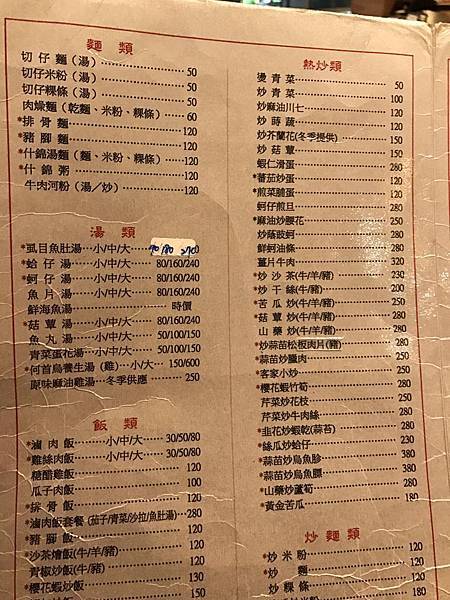 麵類
切仔麵（湯）……50
切仔米粉（湯）……50
切仔粿條（湯）……50
肉燥麵（乾麵、米粉、粿條）……60
*排骨麵……120
*豬腳麵……120
*什錦湯麵（麵、米粉、粿條）……120
*什錦粥……120
牛肉河粉（湯／炒）……120
湯類
*虱目魚肚湯…小/中/大…
*蛤仔湯……小/中/大……80/160/240
*蚵仔湯……小/中/大……80/160/240
魚片湯……小/中/大……80/160/240
鮮海魚湯……時價
*菇蕈湯……小/中/大……80/160/240
魚丸湯……小/中/大……50/100/150
青菜蛋花湯…小/中/大……50/100/150
*何首烏養生湯（雞）…小/大…150/600
原味麻油雞湯…冬季供應……250
飯類
*滷肉飯……小/中/大……30/50/80
*雞絲肉飯……小/中/大……30/50/80
糖醋雞飯……120
瓜子肉飯……100
*排骨飯……120
*滷肉飯套餐（茄子/青菜/沙拉/魚肚湯）…280
*豬腳飯……120
*沙茶燴飯(牛/羊/豬)……120
青椒炒飯(牛/豬)……120
*櫻花蝦炒飯……130
150
熱炒類
燙青菜……50
炒青菜……100
炒麻油川七……120
炒時蔬……120
炒芥蘭花(冬季提供)……150
炒菇蕈……150
蝦仁滑蛋……280
*蕃茄炒蛋……120
*煎菜脯蛋……120
蚵仔煎旦……280
*麻油炒腰花……250
炒蔭豉蚵……280
鮮蚵油條……280
薑片牛肉……320
*炒沙茶(牛/羊/豬)……230
*炒干絲(牛/豬)……200
*苦瓜炒(牛/羊/豬)……250
*韭黃炒(牛/羊/豬)……280
山藥炒(牛/羊/豬)……280
*炒蒜苗松板肉片(豬)……280
*蒜苗炒臘肉……250
*客家小炒……250
*櫻花蝦竹筍……280
芹菜炒花枝……250
芹菜炒牛肉絲……280
*韭花炒蝦乾(蒜苔)……280
*絲瓜炒蛤仔……230
*蒜苗炒烏魚胗……380
*蒜苗炒烏魚膘……380
*山藥炒蘆筍……280
*黃金苦瓜……180
炒麵類
*炒米粉……120
*炒麵……120
*炒粿條……120
180